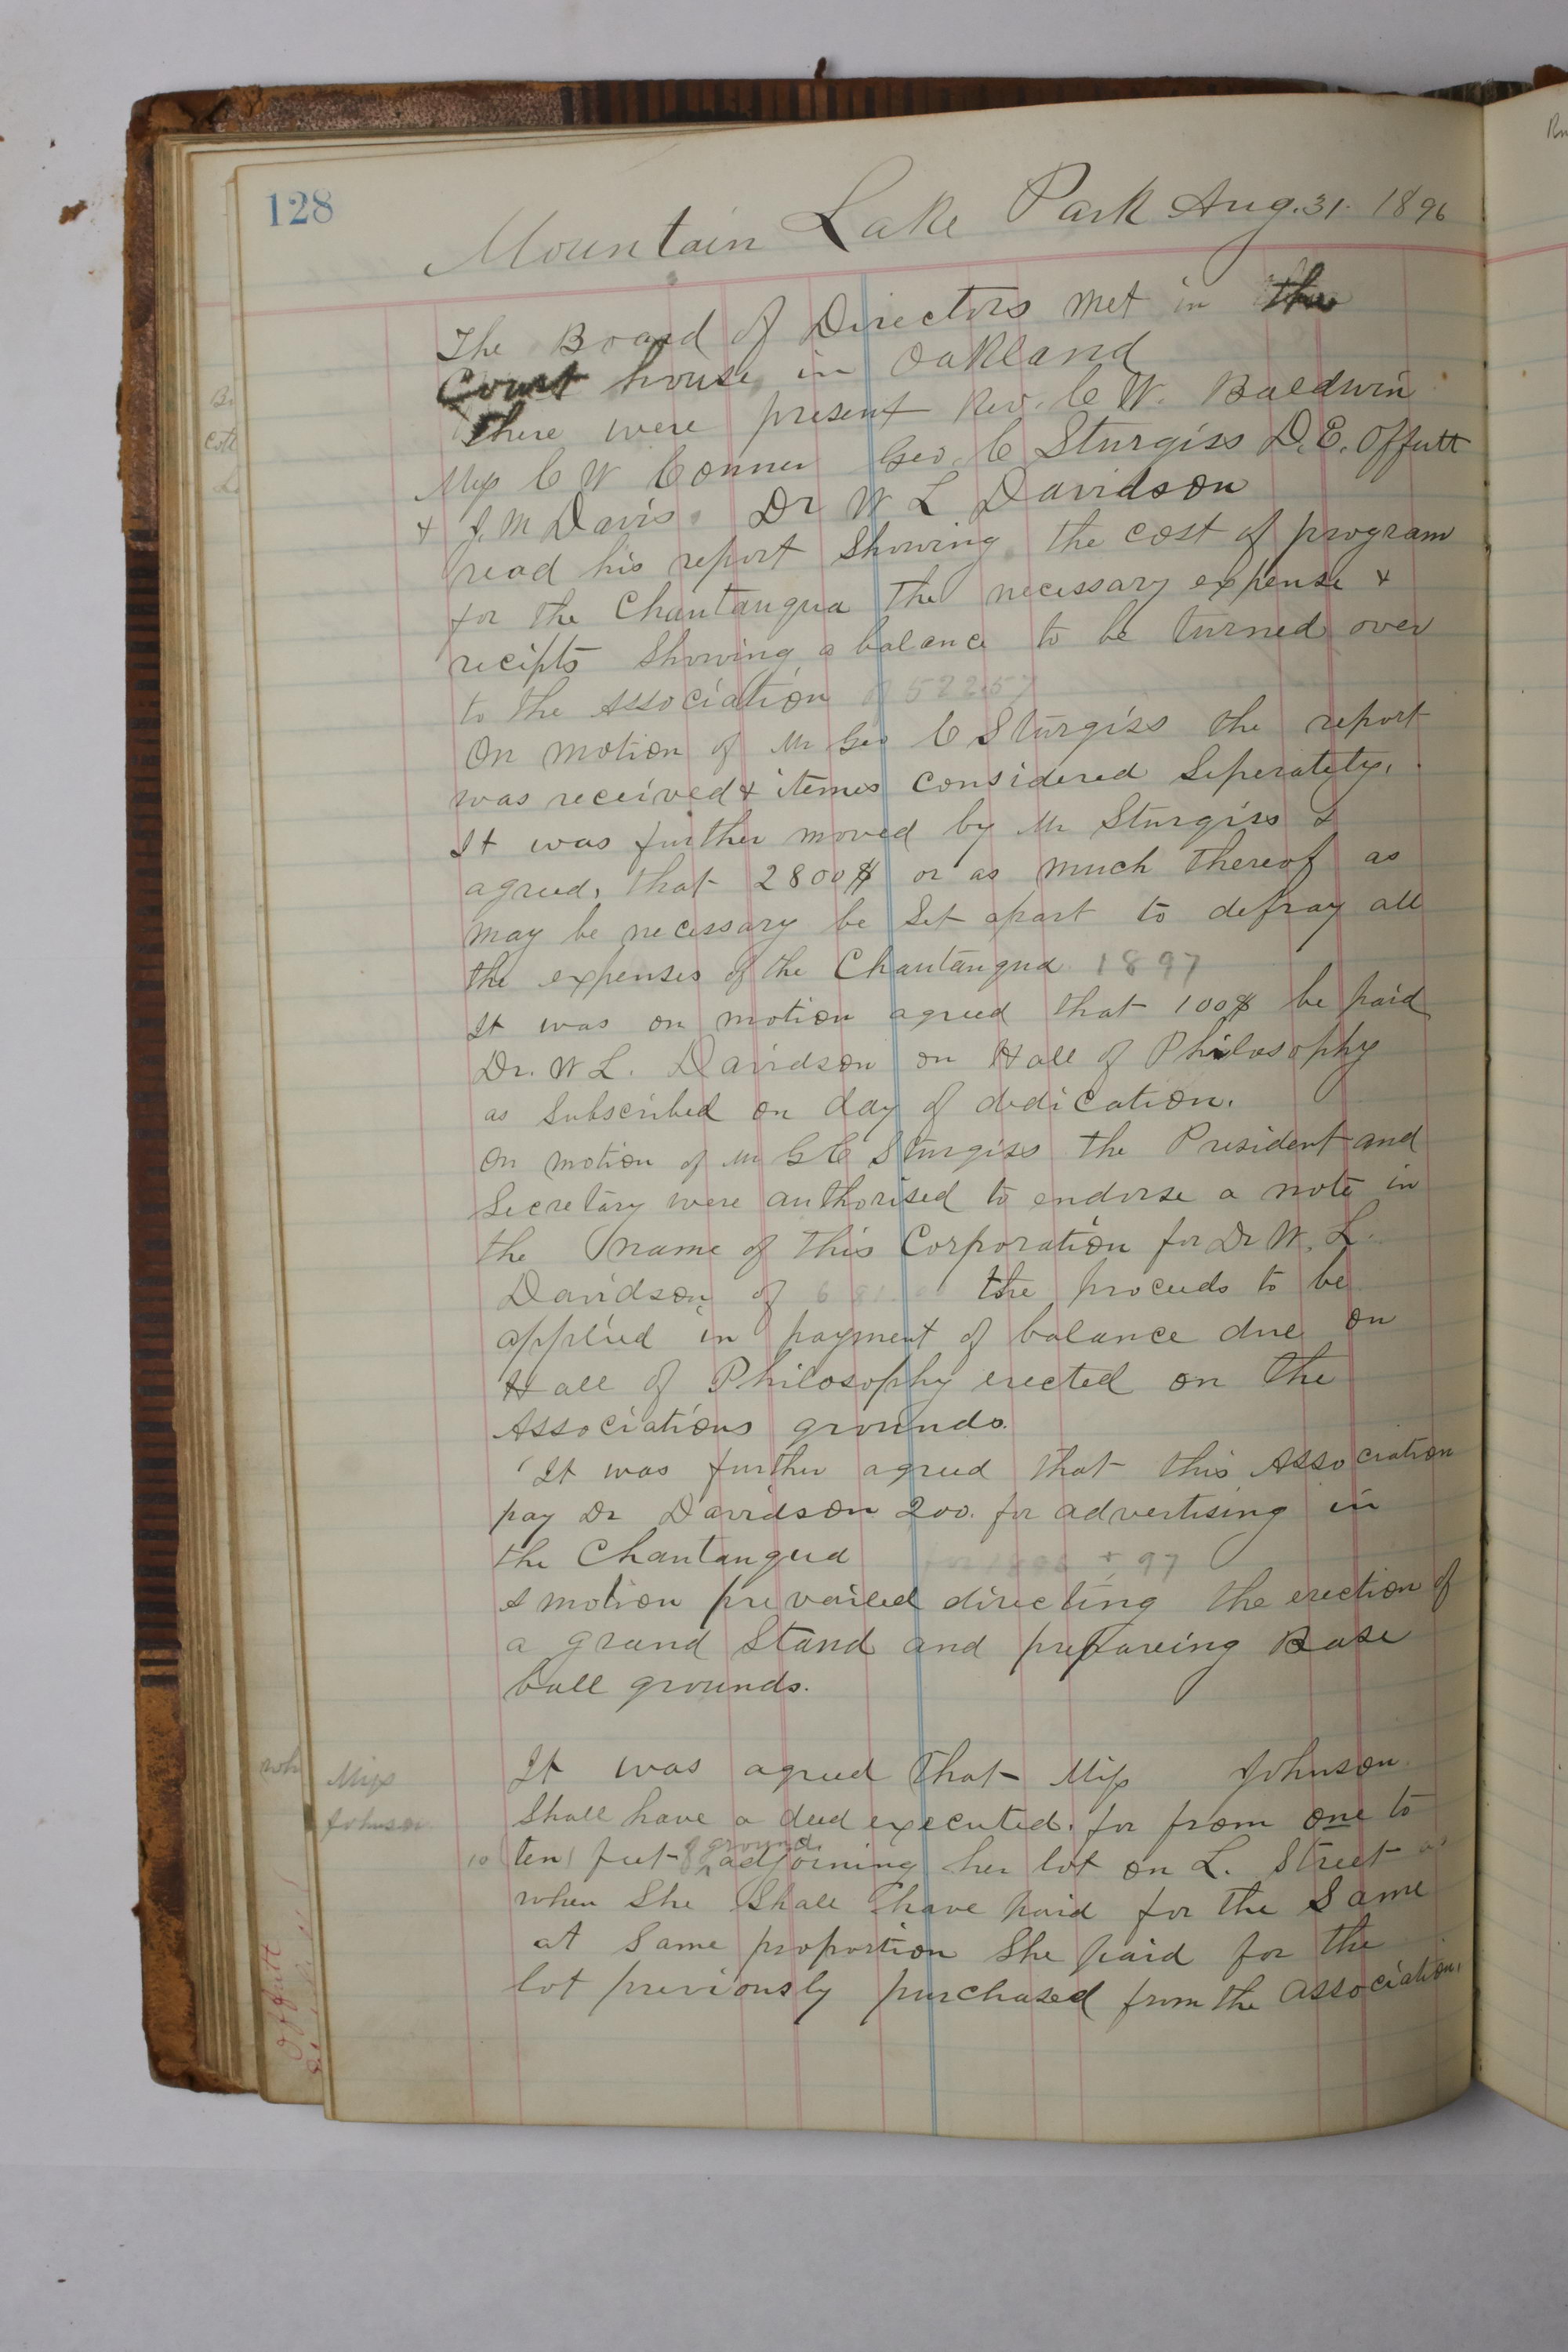 128
Mountain Lake Park Aug. 31. 1896
The Board of Directors met in the
Court house in Oakland
There were present Rev. C W. Baldwin
Miss C W Conner Geo. C Sturgiss D. E. Offutt
& J. M Davis. Dr W L Davidson
read his report Showing the cost of program
for the Chautauqua the necessary expense &
recipts Showing a balance to be turned over
to the Association of 522.57
On motion of Mr Geo C Sturgiss the report
was received & itemes considered Seperately.
It was further moved by Mr Sturgiss &
agreed, that 2800$ or as much thereof as
may be necessary be Set apart to defray all
the expenses of the Chautauqua 1897
It was on motion agreed that 100$ be paid
Dr. W L. Davidson on Hall of Philosophy
as Subscribed on day of dedication.
On motion of Mr G C Sturgiss the President and
Secretary were authorised to endorse a note in
the name of this Corporation for Dr W. L.
Davidson of the proceeds to be
applied in payment of balance due on
Hall of Philosophy erected on the
Associations grounds.
It was further agreed that this Association
pay Dr Davidson 200. for advertising in
the Chautauqua for 1896 & 97
A motion prevailed directing the erection of
a grand Stand and prepareing Base
ball grounds.
Miss
Johnson
It was agreed that Miss Johnson
Shall have a deed executed. for from one to
10 ten feet of ground adjoining her lot on L. Street
when She Shall have paid for the Same
at Same proportion She paid for the
lot previously purchased from the association.
Offutt